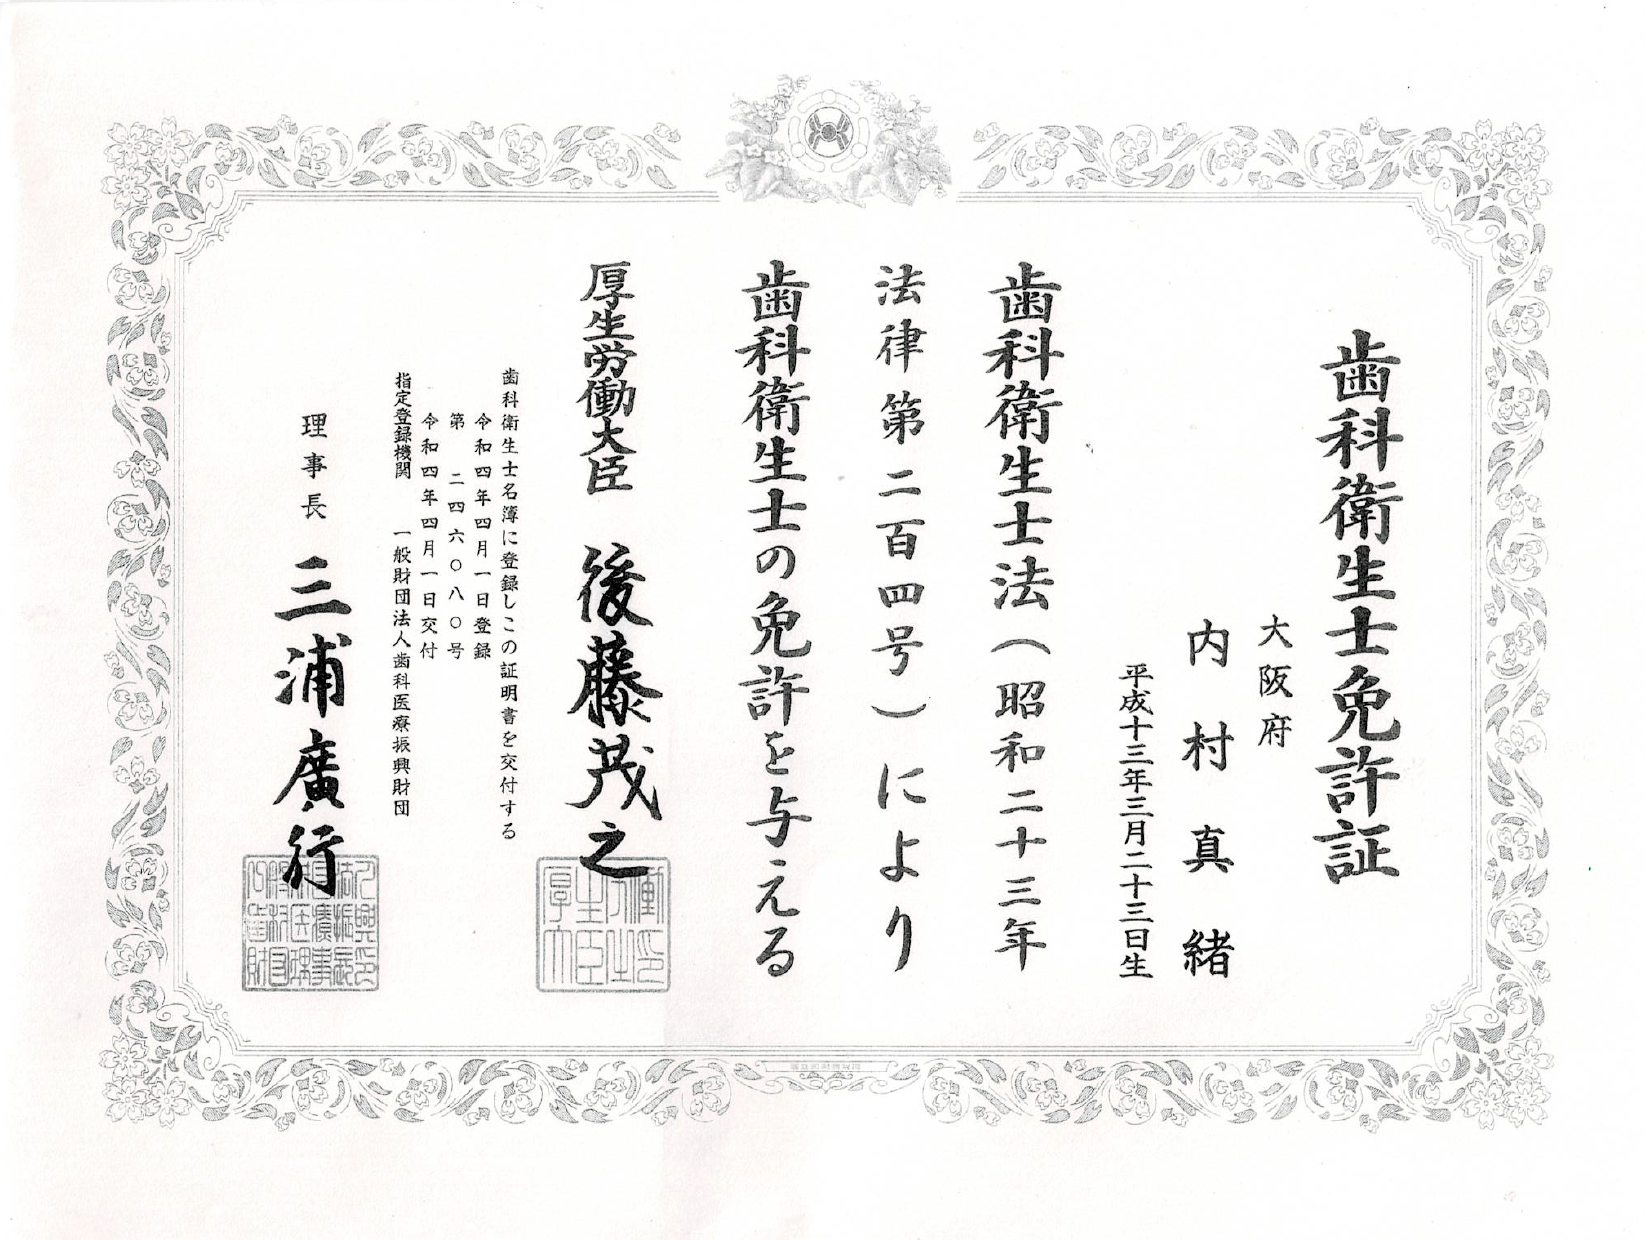 歯科衛生士免許証
大阪府
内村真緒
平成十三年三月二十三日生
歯科衛生士法(昭和二十三年
法律第二百四号)により
歯科衛生士の免許を与える
厚生労働大臣 後藤茂之
歯科衛生士名簿に登録しこの証明書を交付する
令和四年四月一日登録
第 二四六〇八〇号
令和四年四月一日交付
指定登録機関 一般財団法人歯科医療振興財団
理事長 三浦廣行